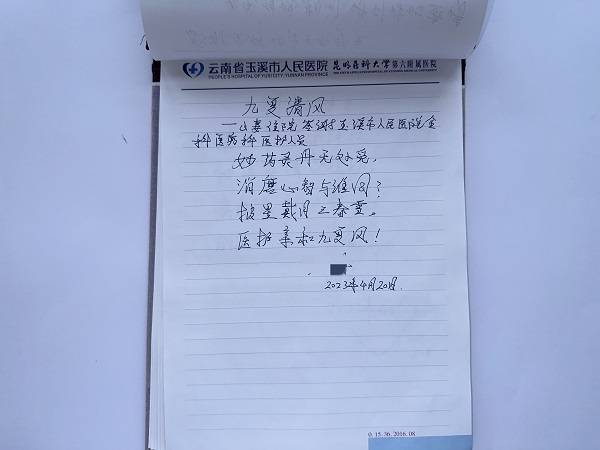 云南省玉溪市人民医院 昆明医科大学第六附属医院
PEOPLE'S HOSPITAL OF YUXI CITY, YUNNAN PROVINCE THE SIXTH AFFILIATED HOSPITAL OF KUNMING MEDICAL UNIVERSITY
九夏清风
—山妻住院答谢玉溪市人民医院全
科医防科医护人员
妙药灵丹无处觅,
消磨心智与谁同?
披星戴月三春重。
医护亲和九夏风!
2023年4月20日.
0.15.36.2016.08